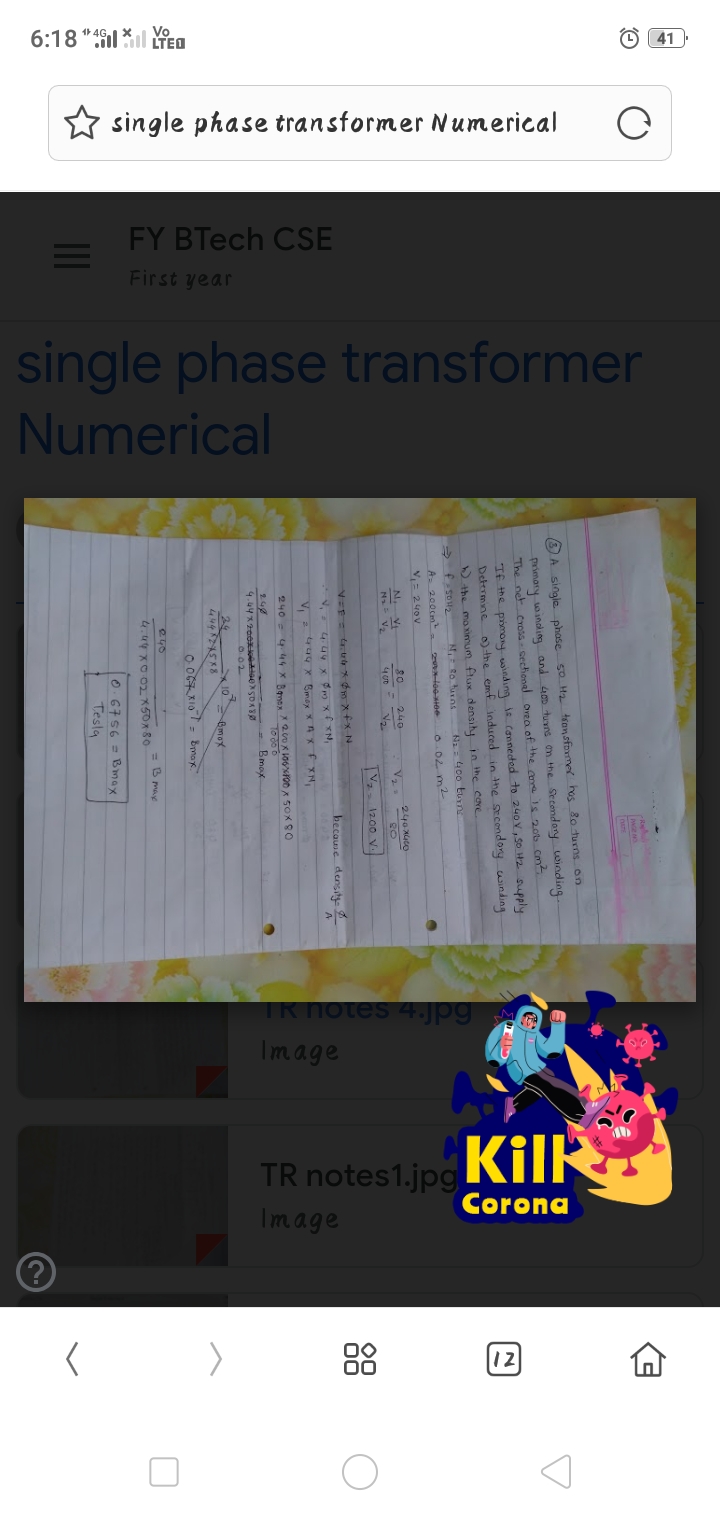 6:18 4G Vo LTE 41
single phase transformer Numerical
FY BTech CSE
First year
single phase transformer
Numerical
③ A single phase 50 Hz transformer has 80 turns on
primary winding and 400 turns on the secondary winding.
The net cross-sectional area of the core is 200 cm².
If the primary winding is connected to 240V, 50 Hz supply
Determine a) the emf induced in the secondary winding
b) the maximum flux density in the core
⇒ f = 50Hz N₁ = 80 turns N₂ = 400 turns
A = 200cm² = 0.02 m²
V₁ = 240V
N₁/N₂ = V₁/V₂ 80/400 = 240/V₂ ∴ V₂ = 240×400/80
V₂ = 1200 V.
V = E = 4.44 × Øm × f × N because density = Ø/A
∴ V₁ = 4.44 × Øm × f × N₁
V₁ = 4.44 × Bmax × A × f × N₁
240 = 4.44 × Bmax × 200 × 50 × 80
10000
240 / 4.44 × 0.02 × 50 × 80 = Bmax
24 / 4.44×2×5×8 × 10³ = Bmax
0.067 × 10⁻¹ = Bmax
240 / 4.44 × 0.02 × 50 × 80 = Bmax
0.6756 = Bmax
Tesla
TR notes 4.jpg
Image
Kill
Corona
TR notes1.jpg
Image
?
12